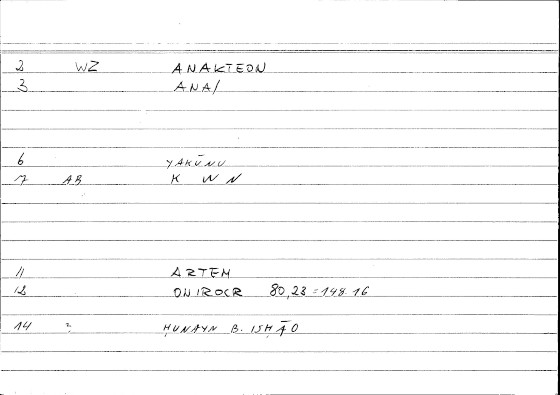 2 WZ ANAKTEON
3 ANA/
6 YAKŪNU
7 AR K W N
11 ARTEM
12 ONIROCR 80,23 = 148.16
14 ḤUNAYN B. ISḤĀQ